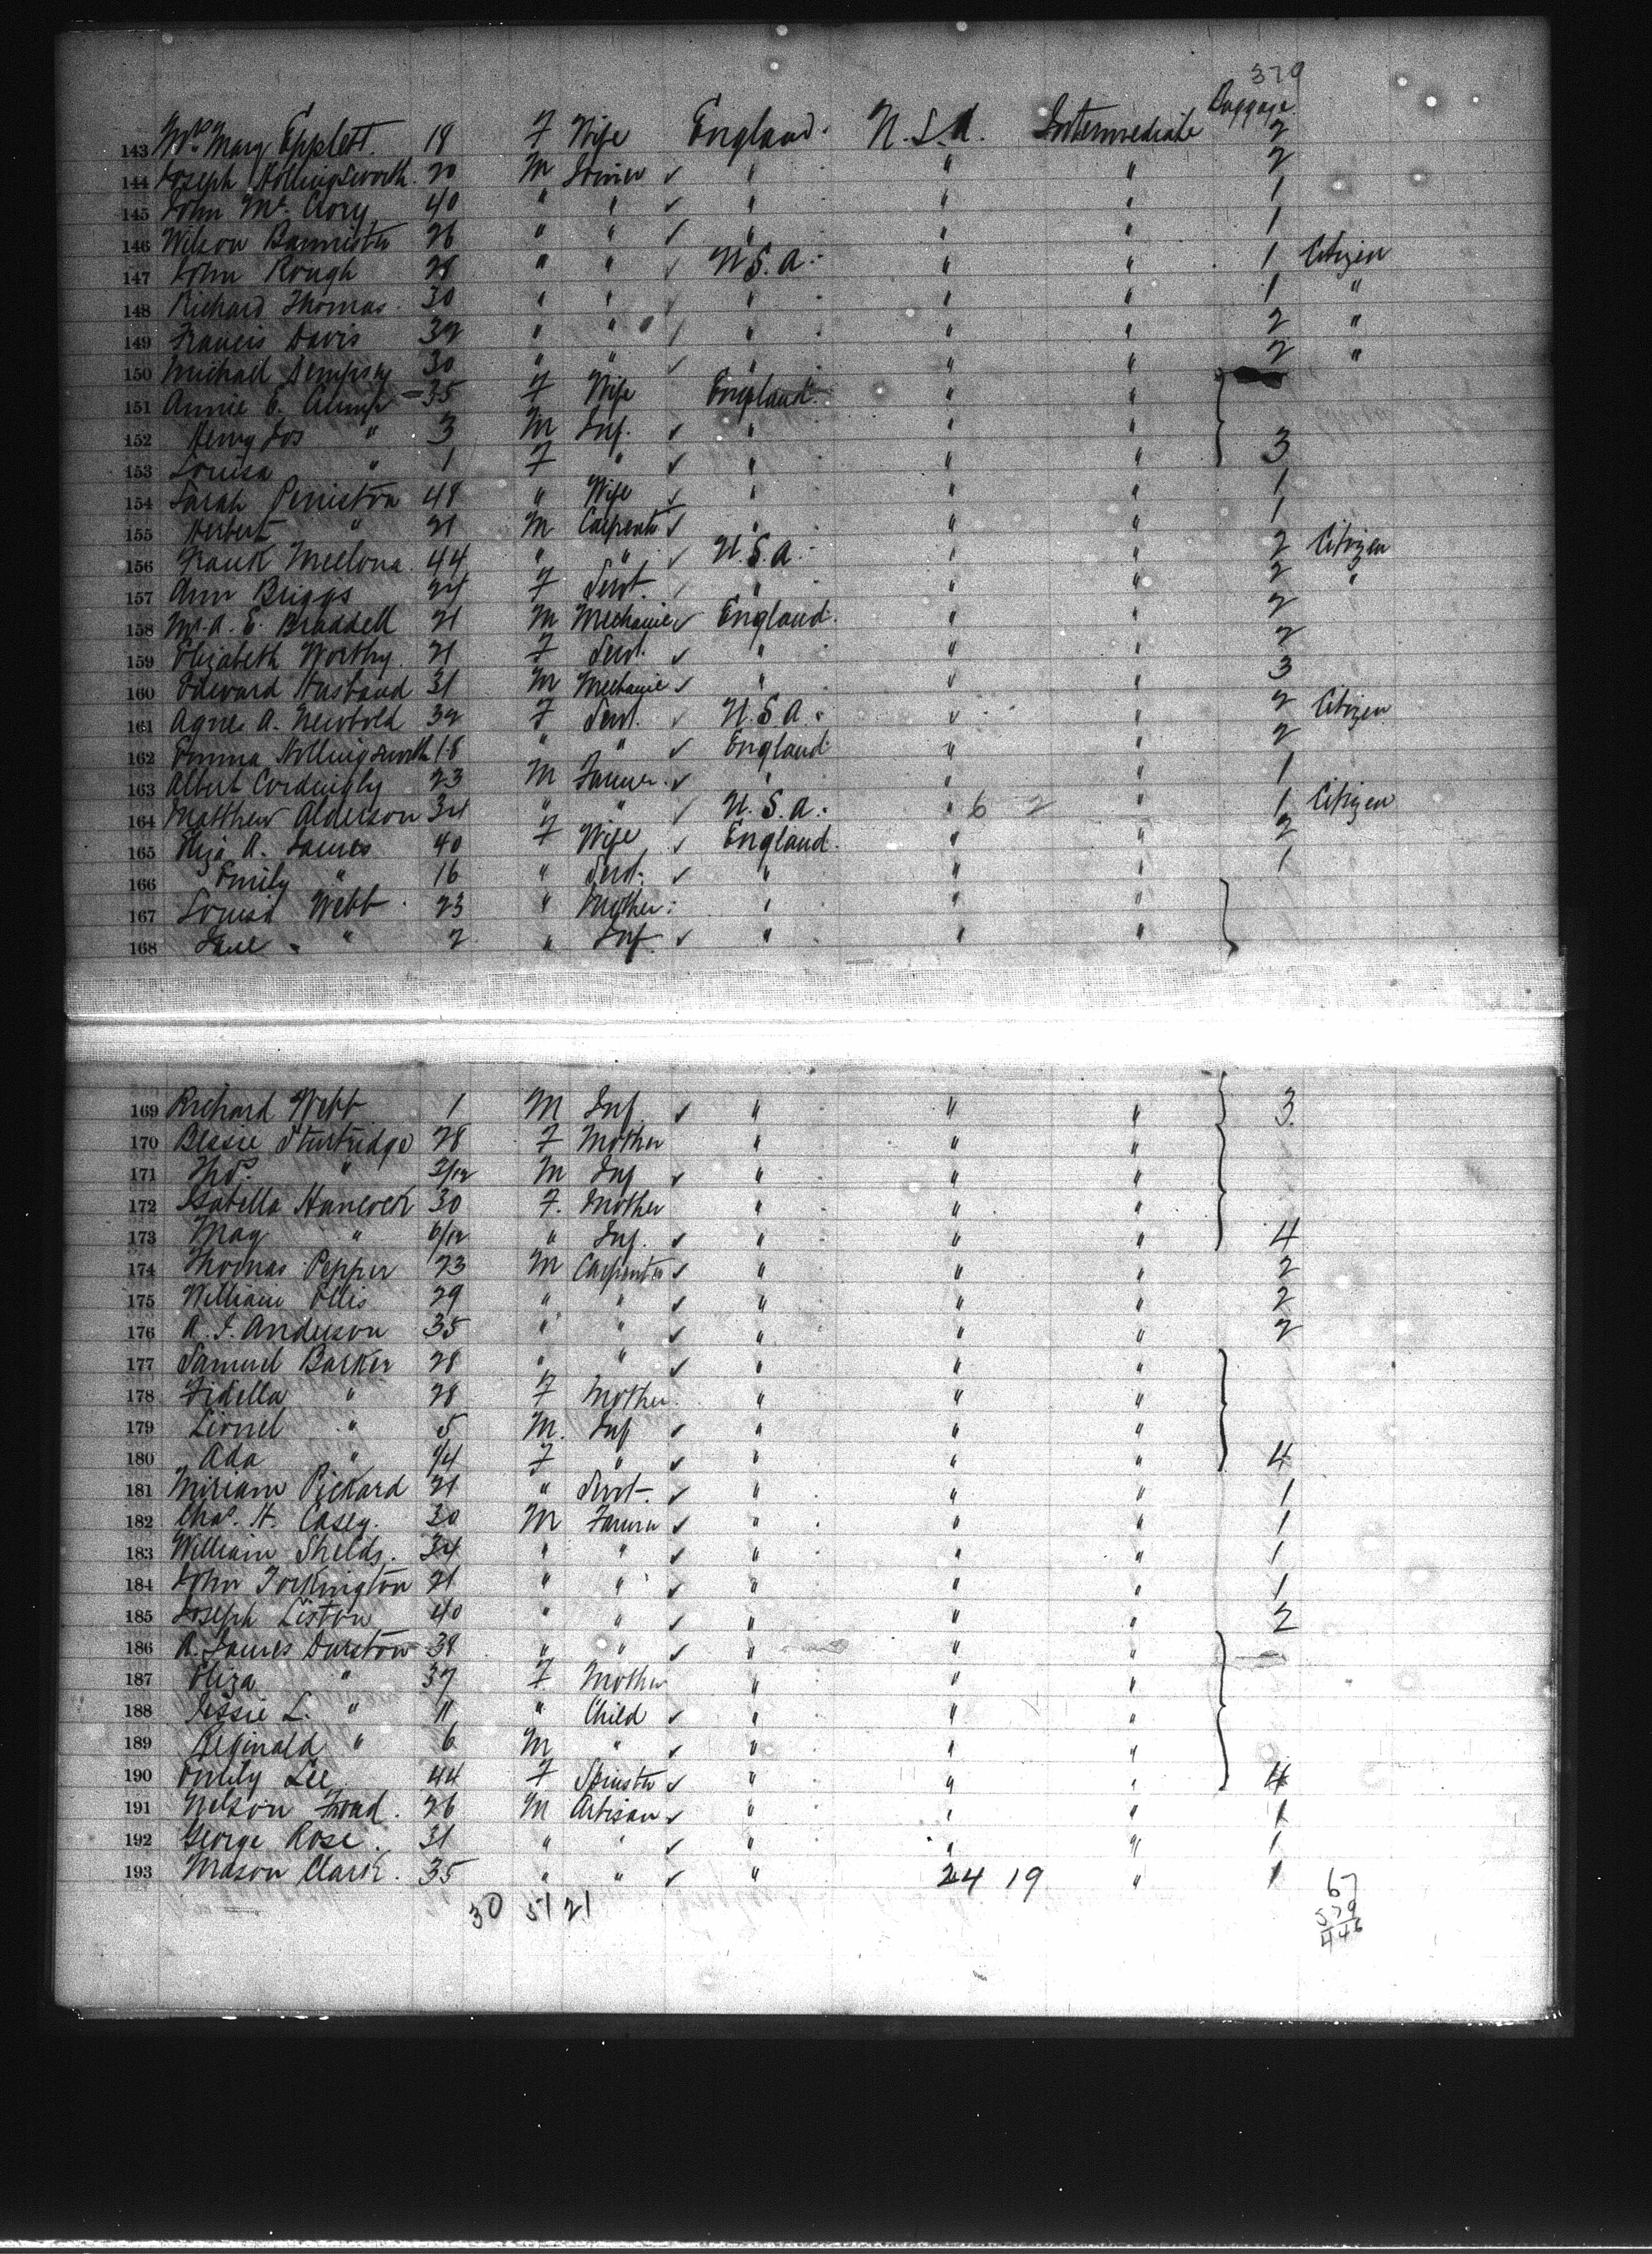 379
Baggage
143 Mrs Mary Epplett. 18 F Wife England. U.S.A. Intermediate 2
144 Joseph Hollingsworth. 20 M Joiner ✓ " " " 2
145 John Mc. Clory 40 " " ✓ " " " 1
146 Wilson Bannister 26 " " ✓ " " " 1
147 John Rough 28 " " ✓ U.S.A. " " 1 Citizen
148 Richard Thomas. 30 " " ✓ " " " 1 "
149 Francis Davis 32 " " ✓ " " " 2 "
150 Michael Dempsey 30 " " ✓ " " " 2 "
151 Annie E. 35 F Wife England. " "
152 Henry Jos " 3 M Inf. ✓ " " "
153 Louisa " 1 F " ✓ " " " 3
154 Sarah Peniston 48 " Wife ✓ " " " 1
155 Herbert " 21 M Carpenter ✓ " " " 1
156 Frank 44 " " ✓ U.S.A. " " 2 Citizen
157 Ann Briggs 24 F Servt. ✓ " " " 2 "
158 E. Braddell 21 M Mechanic ✓ England. " " 2
159 Elizabeth Worthy. 21 F Servt. ✓ " " " 2
160 Edward Husband 31 M Mechanic ✓ " " " 3
161 Agnes A. Newbold 32 F Servt. ✓ U.S.A. " " 2 Citizen
162 Emma Hollingsworth 18 " " ✓ England " " 2
163 Albert Cordingly 23 M Farmer. ✓ " " " 1
164 Matthew Alderson 34 " " ✓ U.S.A. " 6 2 " 1 Citizen
165 Eliza A. James 40 F Wife ✓ England. " " 2
166 Emily " 16 " Servt. ✓ " " " 1
167 Louisa Webb. 23 " Mother. " " "
168 Jane " 2 " Inf ✓ " " "
169 Richard Webb 1 M Inf ✓ " " " 3.
170 Bessie Sturtridge 28 F Mother " " "
171 Thos. " 3/12 M Inf ✓ " " "
172 Isabella Hancock 30 F. Mother " " "
173 May " 6/12 " Inf. ✓ " " " 4
174 Thomas Pepper 23 M Carpenter ✓ " " " 2
175 William Ollis 29 " " ✓ " " " 2
176 A. J. Anderson 35 " " ✓ " " " 2
177 Samuel Barker 28 " " ✓ " " "
178 Fidella " 28 F Mother. " " "
179 Lionel " 5 M. Inf ✓ " " "
180 Ada " 1/4 F " ✓ " " " 4
181 Miriam Pickard 21 " Servt. ✓ " " " 1
182 Chas. H. Casey. 30 M Farmer ✓ " " " 1
183 William Shelds. 34 " " ✓ " " " 1
184 John Torkington 21 " " ✓ " " " 1
185 Joseph Liston 40 " " ✓ " " " 2
186 A. James Durston 38 " " ✓ " " "
187 Eliza " 37 F Mother " " "
188 Jessie L. " 11 " Child ✓ " " "
189 Reginald " 6 M " ✓ " " "
190 Emily Lee 44 F Spinster ✓ " " " 4
191 Nelson 26 M Artisan ✓ " " " 1
192 George Rose. 31 " " ✓ " " " 1
193 Mason Clark. 35 " " ✓ " 24 19 " 1
30 51 21
67
379
446